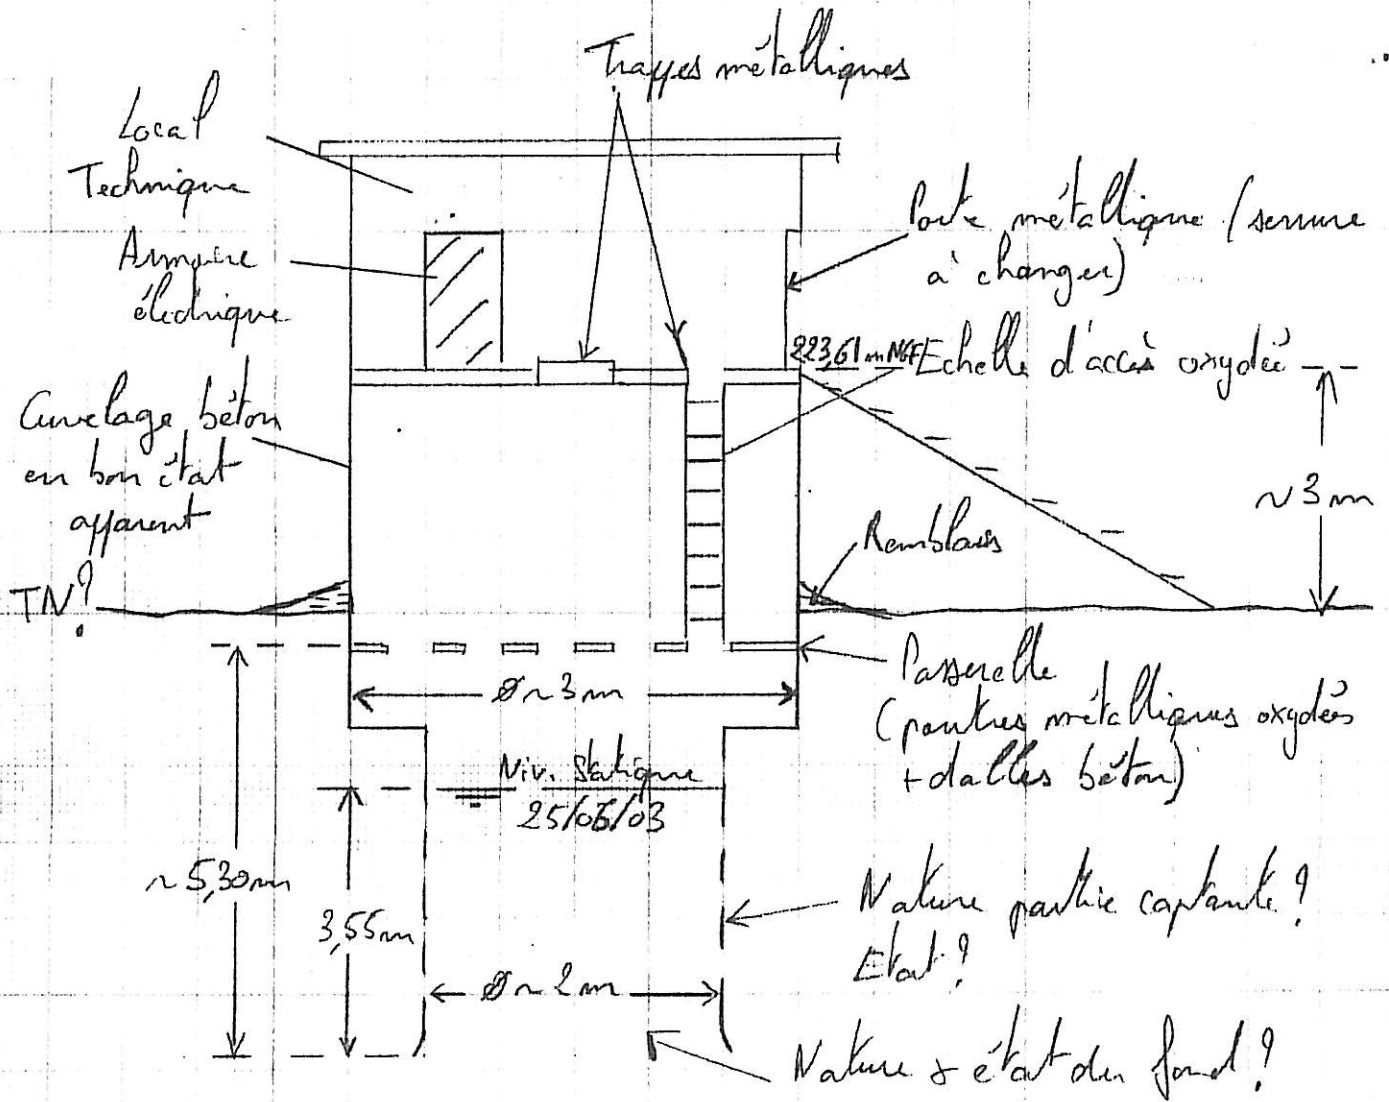 Trappes métalliques
Local
Technique
Armoire
électrique
Porte métallique (serrure
à changer)
223,61 m NGF
Echelle d'accès oxydée
Cuvelage béton
en bon état
apparent
~3m
Remblais
TN?
Passerelle
(poutres métalliques oxydées
+ dalles béton)
Ø~3m
Niv. Statique
25/06/03
~5,30m
3,55m
Nature partie captante?
Etat?
Ø~2m
Nature & état du fond?